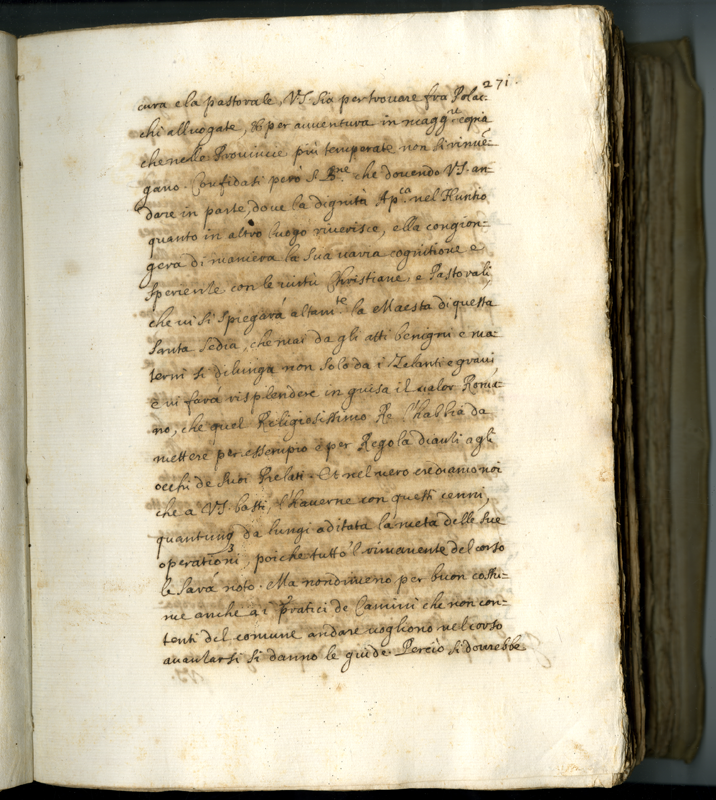 271.
cura e la pastorale, VS. sia per trovare fra Polac-
chi alluogate, & per auuentura in magg.re copia
che nelle Prouincie più temperate non si rinue-
gano. Confidati però S. che douendo VS. an-
dare in parte, doue la dignità Ap.ca nel Nuntio
quanto in altro luogo riuerisce, ella congion-
gerà di maniera la sua uaria cognitione e
sperienze con le uirtù Christiane, e Pastorali,
che ui si spiegarà altam.te la Maestà di questa
Santa Sedia, che mai da gli atti benigni e ma-
terni si dilunga non solo da i Zelanti e graui
e ui farà risplendere in guisa il ualor Roma-
no, che quel Religiosissimo Re l'habbia da
mettere per essempio e per Regola diauti agli
occhi de suoi Prelati. Et nel uero crediamo noi
che a VS. basti, l'hauerne con questi cenni,
quantunq3 da lungi aditata la meta delle sue
operationi, poiche tutto 'l rimanente del corso
le sarà noto. Ma nondimeno per buon costu-
me anche a i pratici de Camini che non con-
tenti del comune andare uogliono nel corso
auantarsi si danno le guide. Perciò si dourebbe